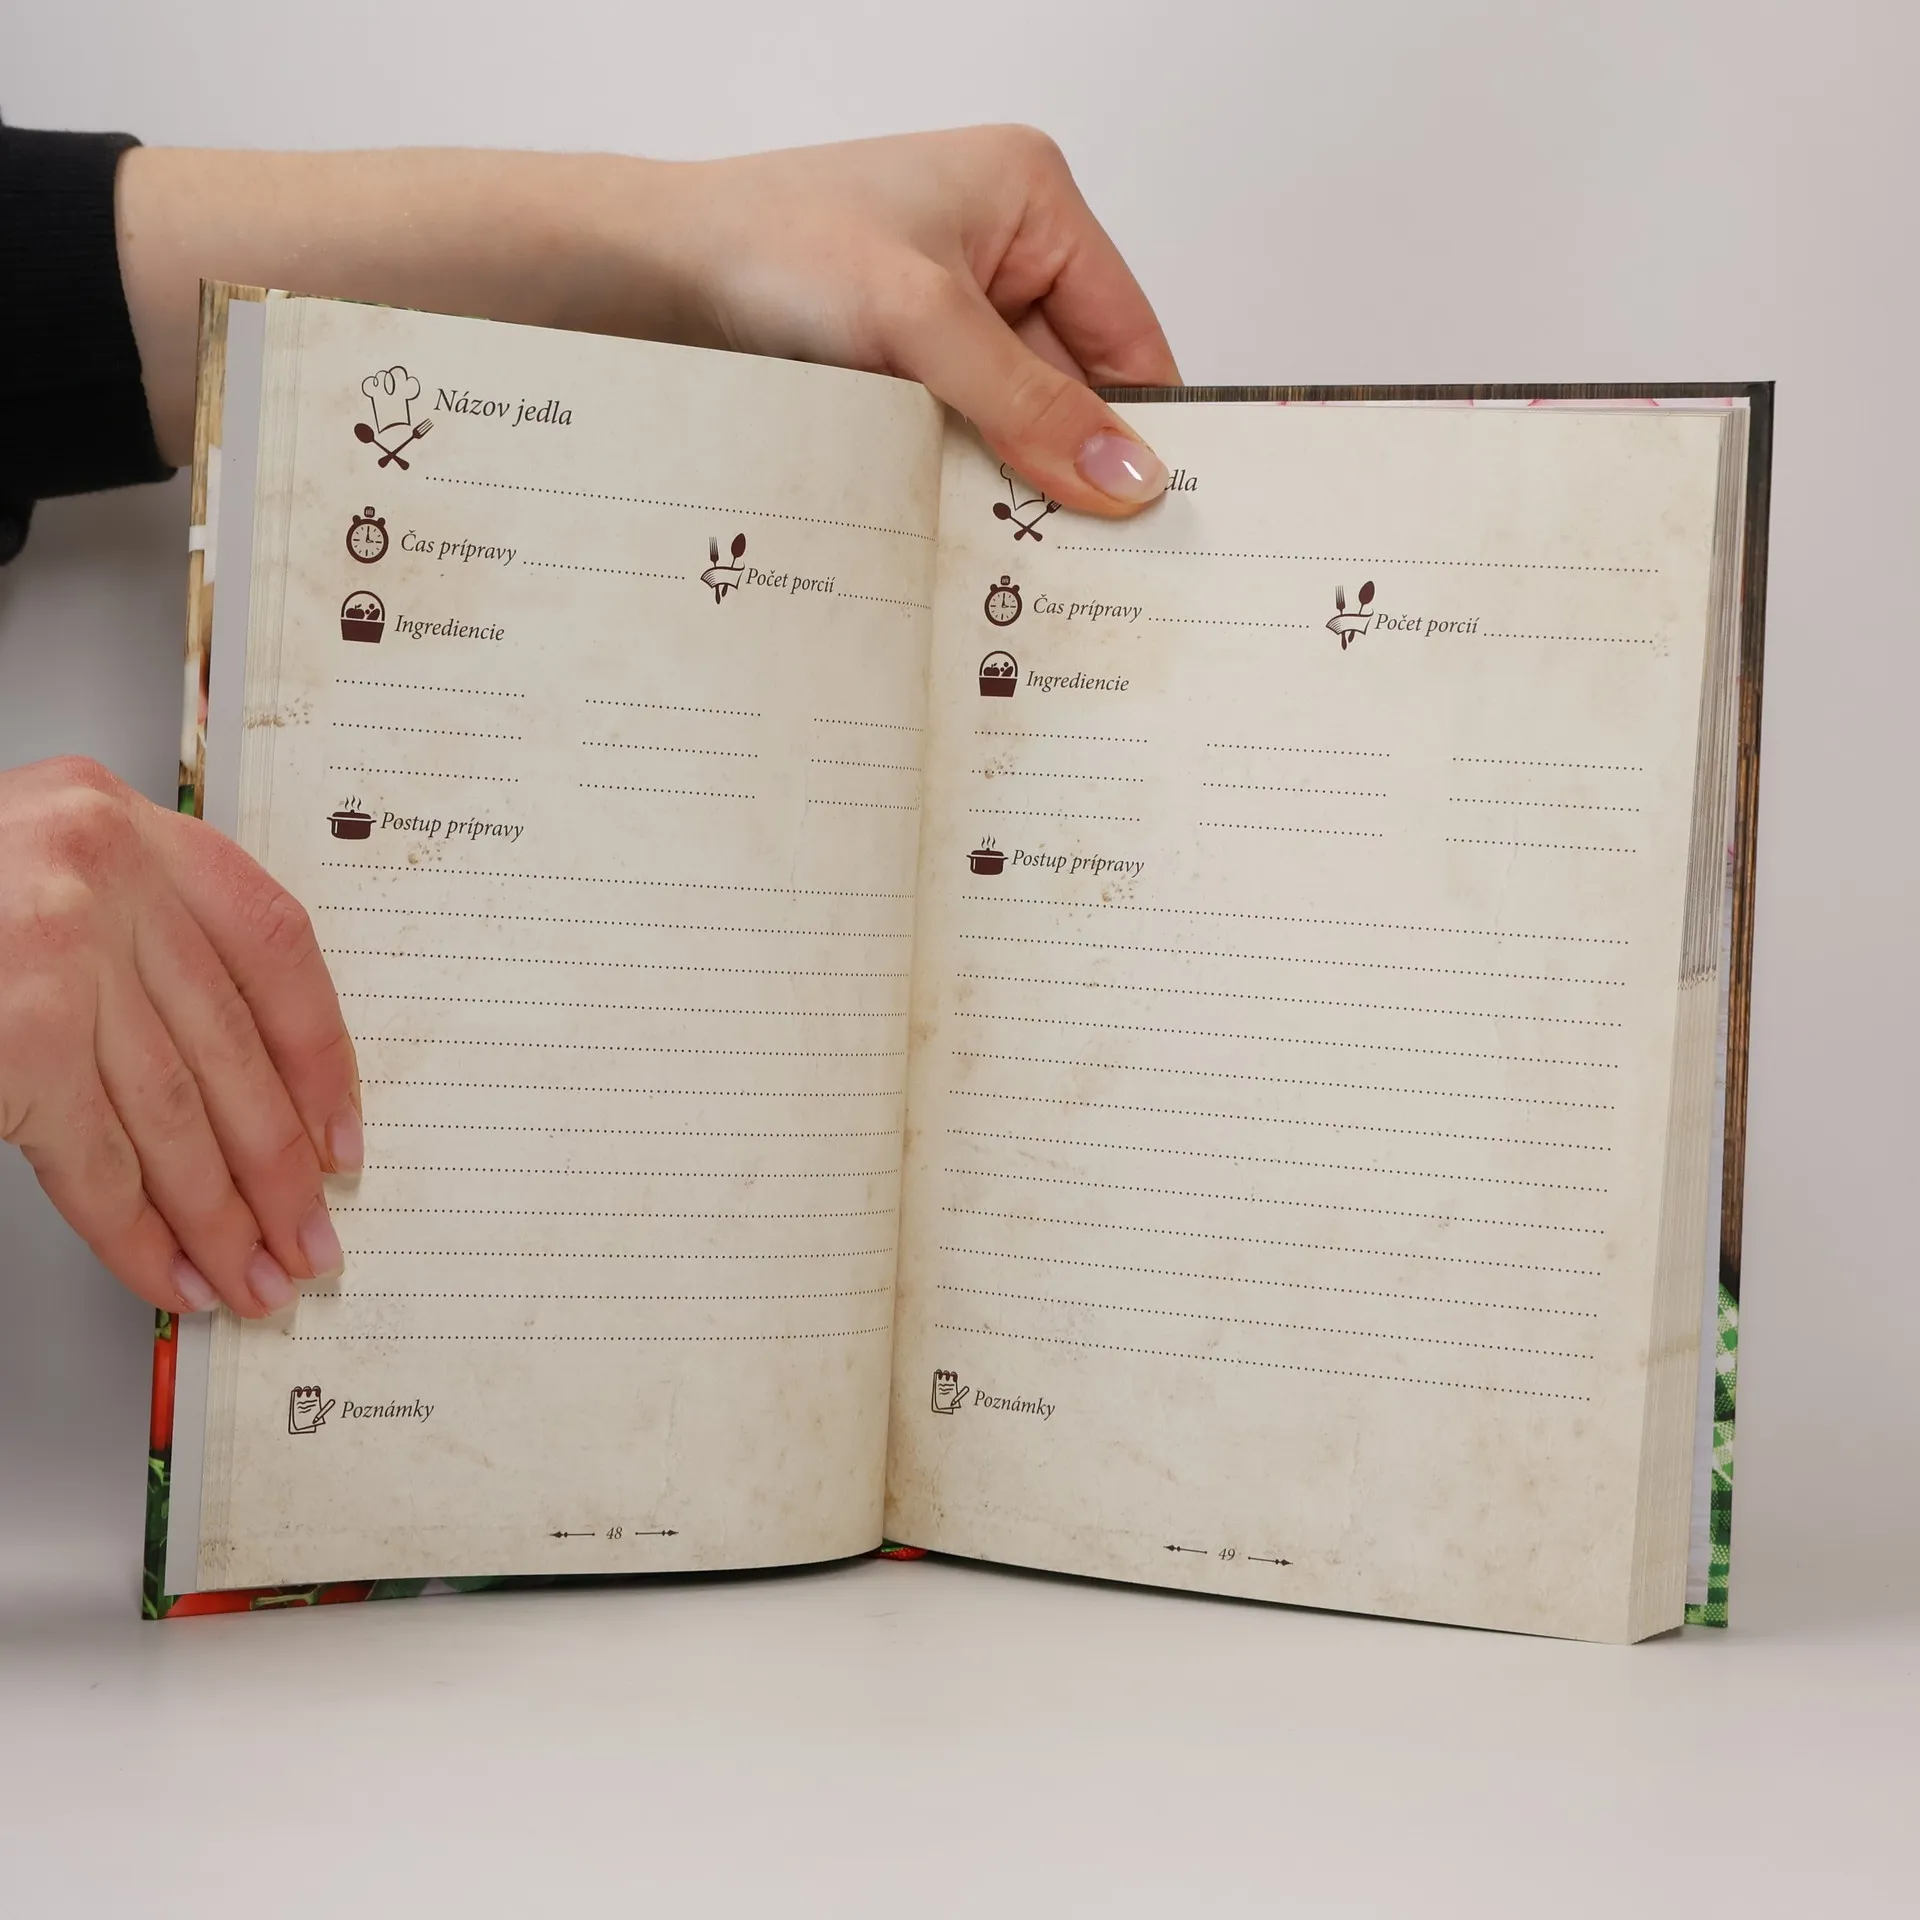 Názov jedla
Čas prípravy
Počet porcií
Ingrediencie
Postup prípravy
Poznámky
48
Čas prípravy
Počet porcií
Ingrediencie
Postup prípravy
Poznámky
49